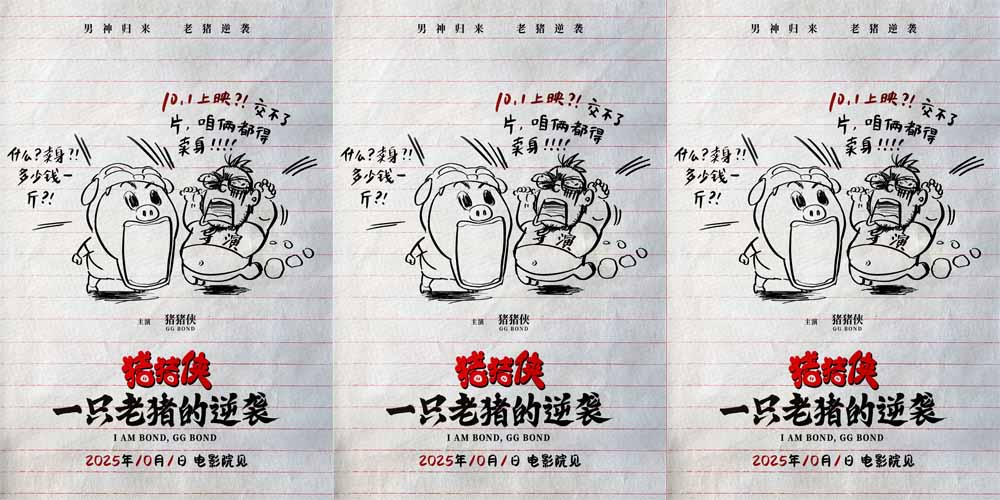 男神归来 老猪逆袭
10.1上映?! 交不了
片,咱俩都得
卖身!!!!
什么?卖身?!
多少钱一
斤?!
导演
主演 猪猪侠
GG BOND
猪猪侠
一只老猪的逆袭
I AM BOND, GG BOND
2025年10月1日 电影院见
男神归来 老猪逆袭
10.1上映?! 交不了
片,咱俩都得
卖身!!!!
什么?卖身?!
多少钱一
斤?!
导演
主演 猪猪侠
GG BOND
猪猪侠
一只老猪的逆袭
I AM BOND, GG BOND
2025年10月1日 电影院见
男神归来 老猪逆袭
10.1上映?! 交不了
片,咱俩都得
卖身!!!!
什么?卖身?!
多少钱一
斤?!
导演
主演 猪猪侠
GG BOND
猪猪侠
一只老猪的逆袭
I AM BOND, GG BOND
2025年10月1日 电影院见